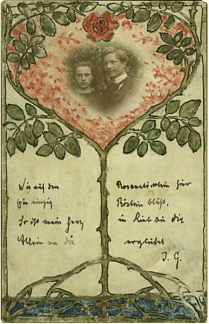 Wie auf dem Rosenstöcklein hier
ein einzig Röslein blüht,
So ist mein Herz in Lieb zu dir
Allein zu dir erglüht
J. G.